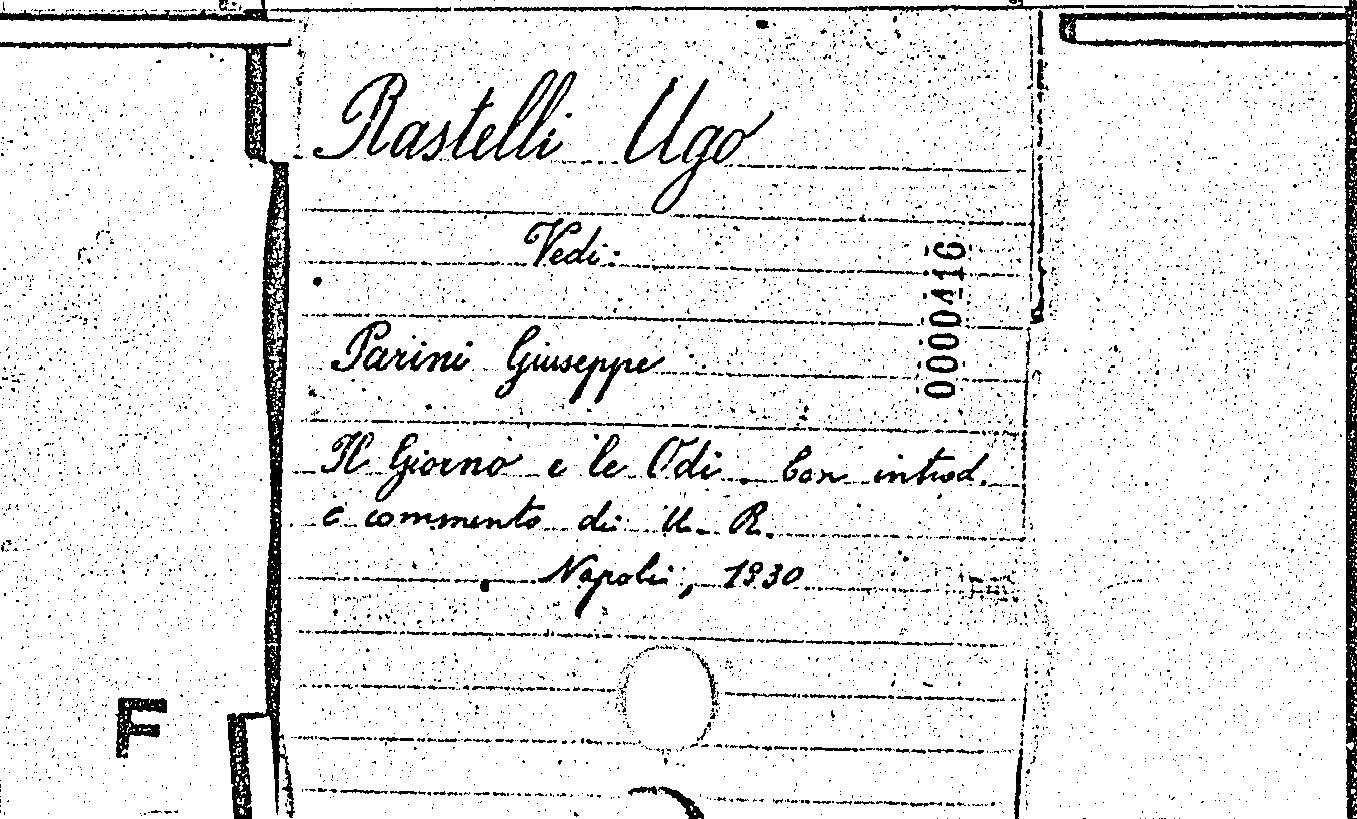 Rastelli Ugo
Vedi:
0000416
Parini Giuseppe
Il Giorno e le Odi. Con introd.
e commento di U. R.
Napoli, 1930
F